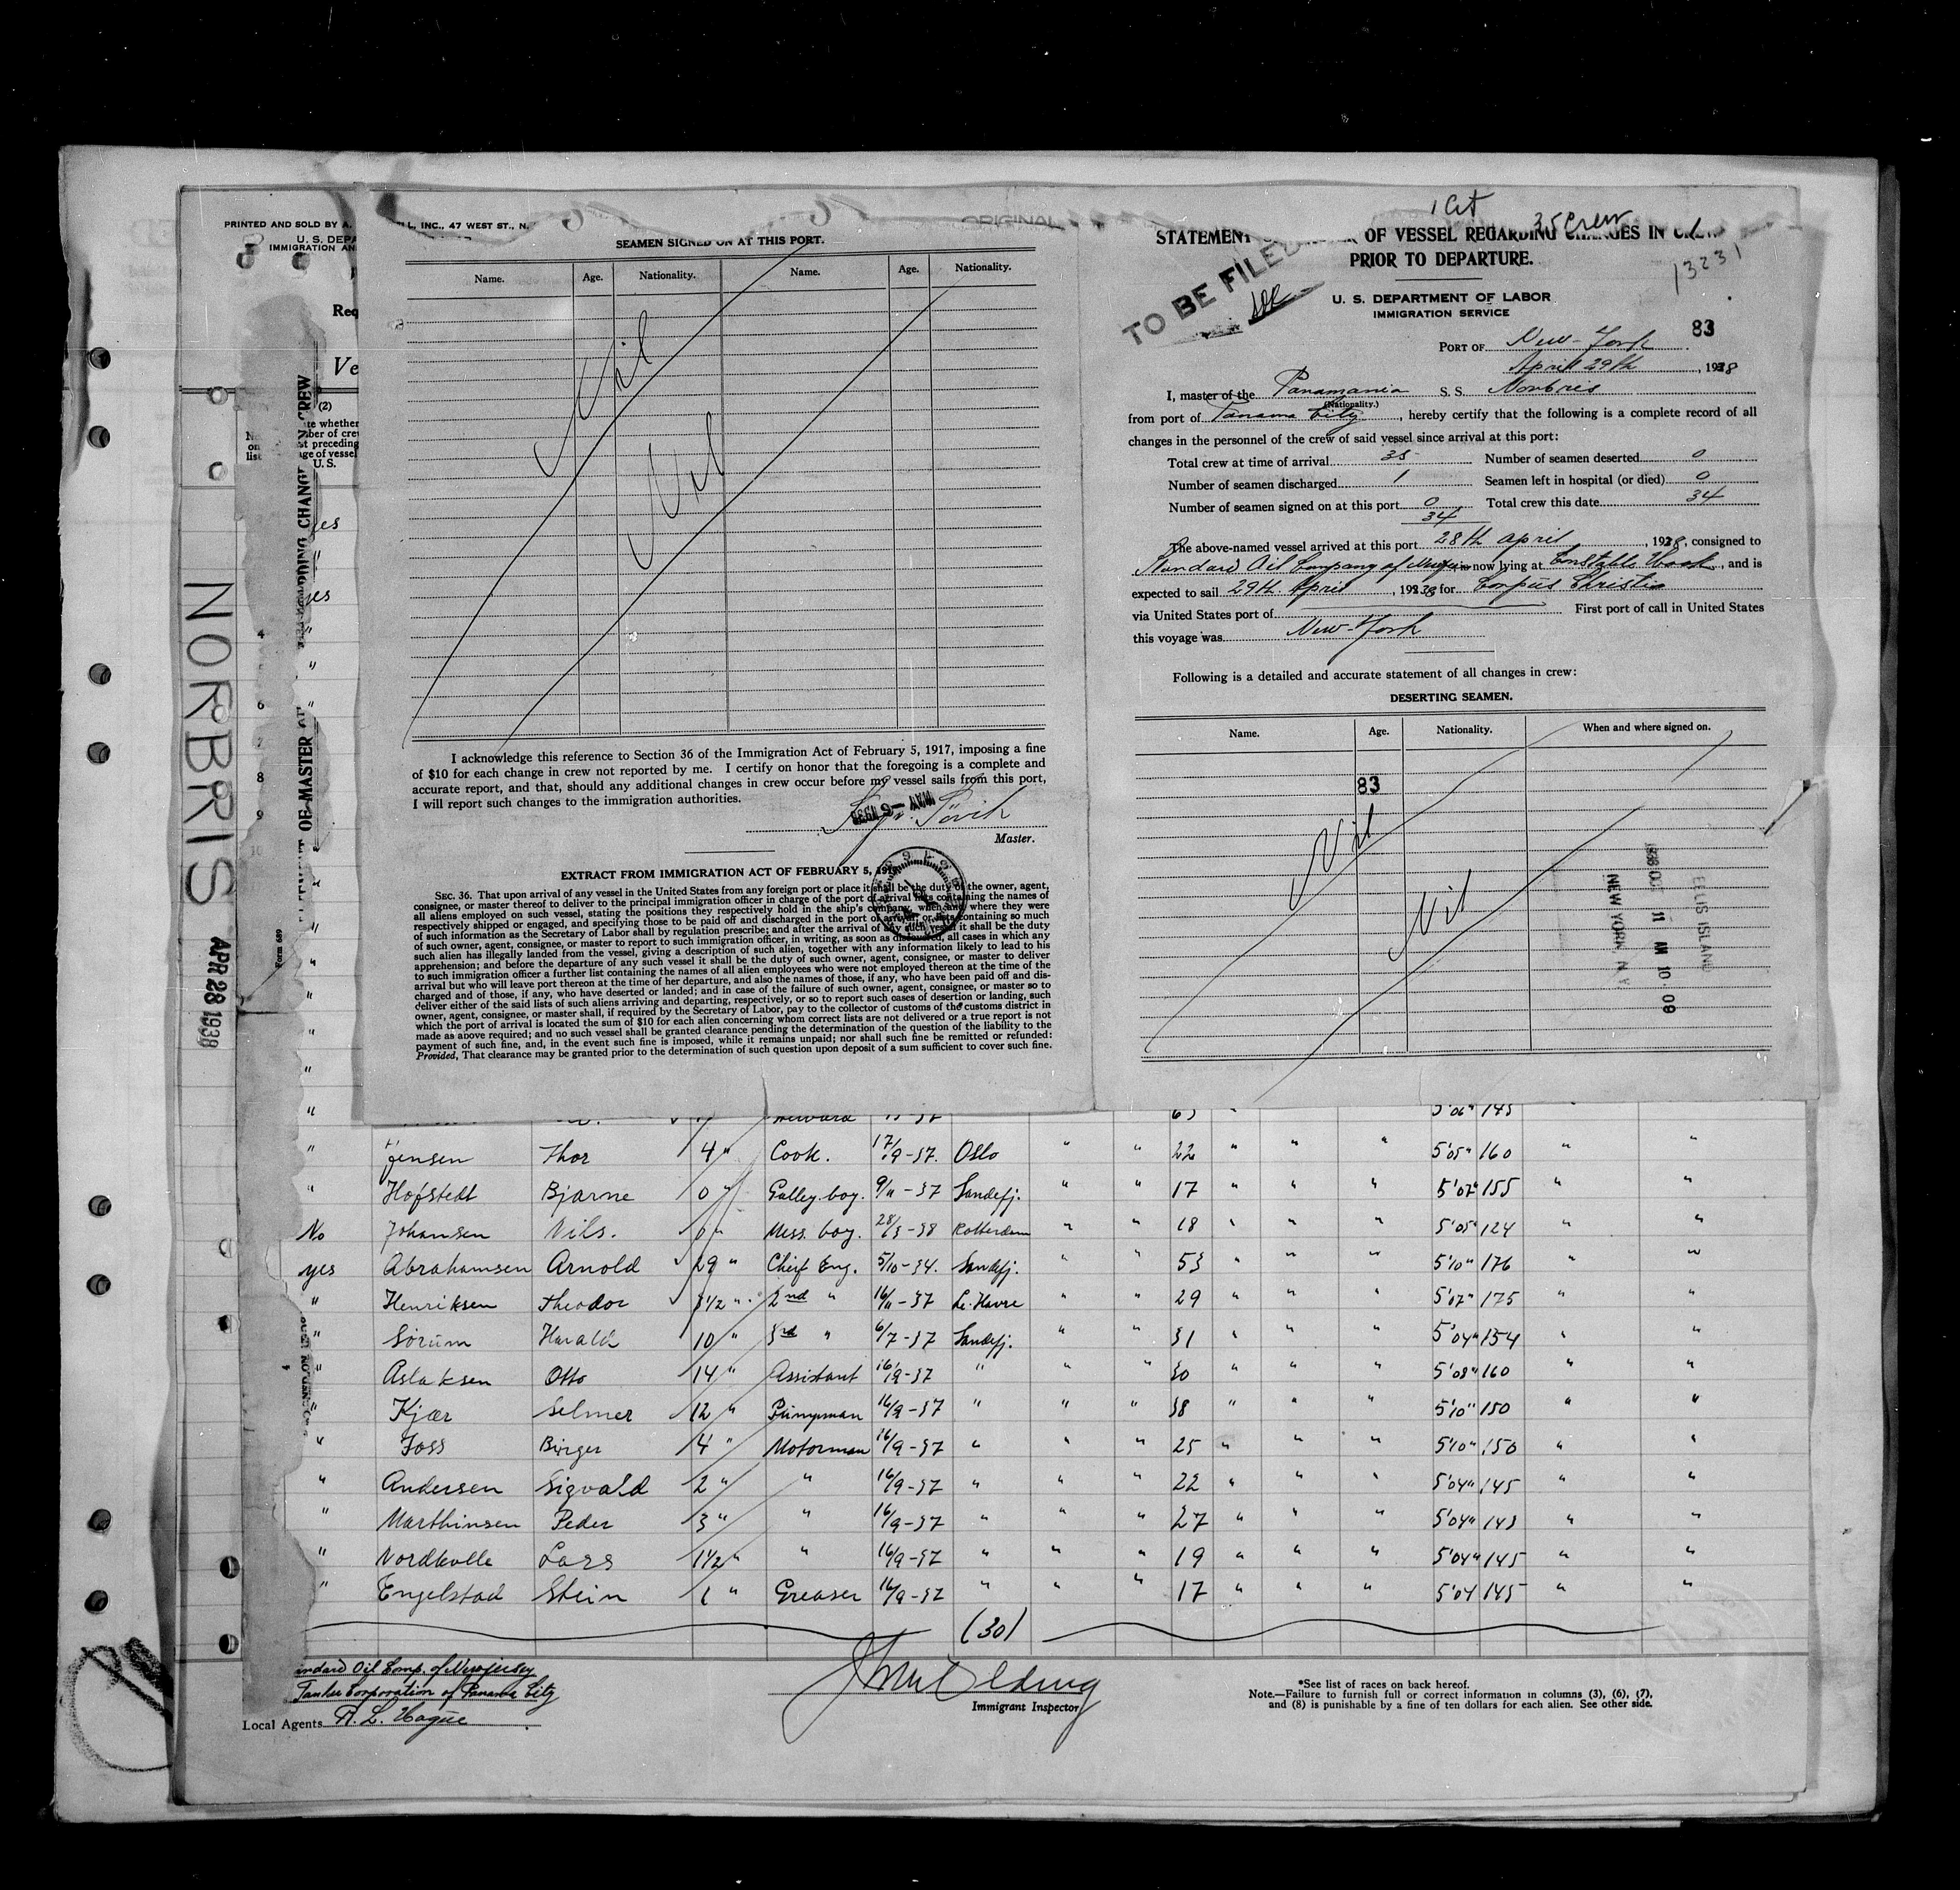 PRINTED AND SOLD BY A.
LL, INC., 47 WEST ST., N.
U. S. DEPA
IMMIGRATION AN
Req
Ve
(2)
NORBRIS
APR 28 1938
Form 689
ORIGINAL
SEAMEN SIGNED ON AT THIS PORT.
Name. Age. Nationality. Name. Age. Nationality.
Nil
Nil
I acknowledge this reference to Section 36 of the Immigration Act of February 5, 1917, imposing a fine
of $10 for each change in crew not reported by me. I certify on honor that the foregoing is a complete and
accurate report, and that, should any additional changes in crew occur before my vessel sails from this port,
I will report such changes to the immigration authorities.
MAY -6 1938
Master.
EXTRACT FROM IMMIGRATION ACT OF FEBRUARY 5, 1917
SEC. 36. That upon arrival of any vessel in the United States from any foreign port or place it shall be the duty of the owner, agent,
consignee, or master thereof to deliver to the principal immigration officer in charge of the port of arrival lists containing the names of
all aliens employed on such vessel, stating the positions they respectively hold in the ship's company, when and where they were
respectively shipped or engaged, and specifying those to be paid off and discharged in the port of arrival; or lists containing so much
of such information as the Secretary of Labor shall by regulation prescribe; and after the arrival of any such vessel it shall be the duty
of such owner, agent, consignee, or master to report to such immigration officer, in writing, as soon as discovered, all cases in which any
such alien has illegally landed from the vessel, giving a description of such alien, together with any information likely to lead to his
apprehension; and before the departure of any such vessel it shall be the duty of such owner, agent, consignee, or master to deliver
to such immigration officer a further list containing the names of all alien employees who were not employed thereon at the time of the
arrival but who will leave port thereon at the time of her departure, and also the names of those, if any, who have been paid off and dis-
charged and of those, if any, who have deserted or landed; and in case of the failure of such owner, agent, consignee, or master so to
deliver either of the said lists of such aliens arriving and departing, respectively, or so to report such cases of desertion or landing, such
owner, agent, consignee, or master shall, if required by the Secretary of Labor, pay to the collector of customs of the customs district in
which the port of arrival is located the sum of $10 for each alien concerning whom correct lists are not delivered or a true report is not
made as above required; and no such vessel shall be granted clearance pending the determination of the question of the liability to the
payment of such fine, and, in the event such fine is imposed, while it remains unpaid; nor shall such fine be remitted or refunded:
Provided, That clearance may be granted prior to the determination of such question upon deposit of a sum sufficient to cover such fine.
35 Crew
13231
STATEMENT OF VESSEL REGARDING CHANGES IN
PRIOR TO DEPARTURE.
TO BE FILED
U. S. DEPARTMENT OF LABOR
IMMIGRATION SERVICE
83
PORT OF New-York
April 29th, 1938
I, master of the Panamania S. S. Norbris
(Nationality.)
from port of Panama City, hereby certify that the following is a complete record of all
changes in the personnel of the crew of said vessel since arrival at this port:
Total crew at time of arrival 35 Number of seamen deserted 0
Number of seamen discharged 1 Seamen left in hospital (or died) 0
Number of seamen signed on at this port 0 Total crew this date 34
34
The above-named vessel arrived at this port 28th april, 1938, consigned to
Standard Oil Company of now lying at Constable Hook, and is
expected to sail 29th April, 1938 for Corpus Christi
via United States port of First port of call in United States
this voyage was New-York
Following is a detailed and accurate statement of all changes in crew:
DESERTING SEAMEN.
Name. Age. Nationality. When and where signed on.
83
Nil
Nil
ELLIS ISLAND
11 AM 10 09
NEW YORK N Y
63 " " " 5'06" 145
" Jensen Thor 4 " Cook. 17/9-37. Oslo " " 22 " " " 5'05" 160 " "
" Hofstedt Bjarne 0 " Galley-boy. 9/11-37 Sandefj. " " 17 " " " 5'07" 155 " "
No Johansen Nils. 0 " Mess. boy. 28/3-38 Rotterdam " " 18 " " " 5'05" 124 " "
yes Abrahamsen Arnold 29 " Chief Eng. 5/10-34. Sandefj. " " 53 " " " 5'10" 176 " "
" Henriksen Theodor 3 1/2 " 2nd " 16/11-37 Le. Havre " " 29 " " " 5'07" 175 " "
" Sørum Harald 10 " 3rd " 6/7-37 Sandefj. " " 31 " " " 5'04" 154 " "
" Aslaksen Otto 14 " Assistant 16/9-37 " " " 30 " " " 5'08" 160 " "
" Kjær Selmer 12 " Pumpman 16/9-37 " " " 38 " " " 5'10" 150 " "
" Foss Birger 4 " Motorman 16/9-37 " " " 25 " " " 5'10" 150 " "
" Andersen Sigvald 2 " " 16/9-37 " " " 22 " " " 5'04" 145 " "
" Marthinsen Peder 3 " " 16/9-37 " " " 27 " " " 5'04" 143 " "
" Nordkvelle Lars 1 1/2 " " 16/9-37 " " " 19 " " " 5'04" 145 " "
" Engelstad Stein 1 " Greaser 16/9-37 " " " 17 " " " 5'04 145 " "
(30)
Standard Oil Comp. of New jersey
Tanker Corporation of Panama City
Local Agents R. L. Hague
Immigrant Inspector
*See list of races on back hereof.
Note.—Failure to furnish full or correct information in columns (3), (6), (7),
and (8) is punishable by a fine of ten dollars for each alien. See other side.